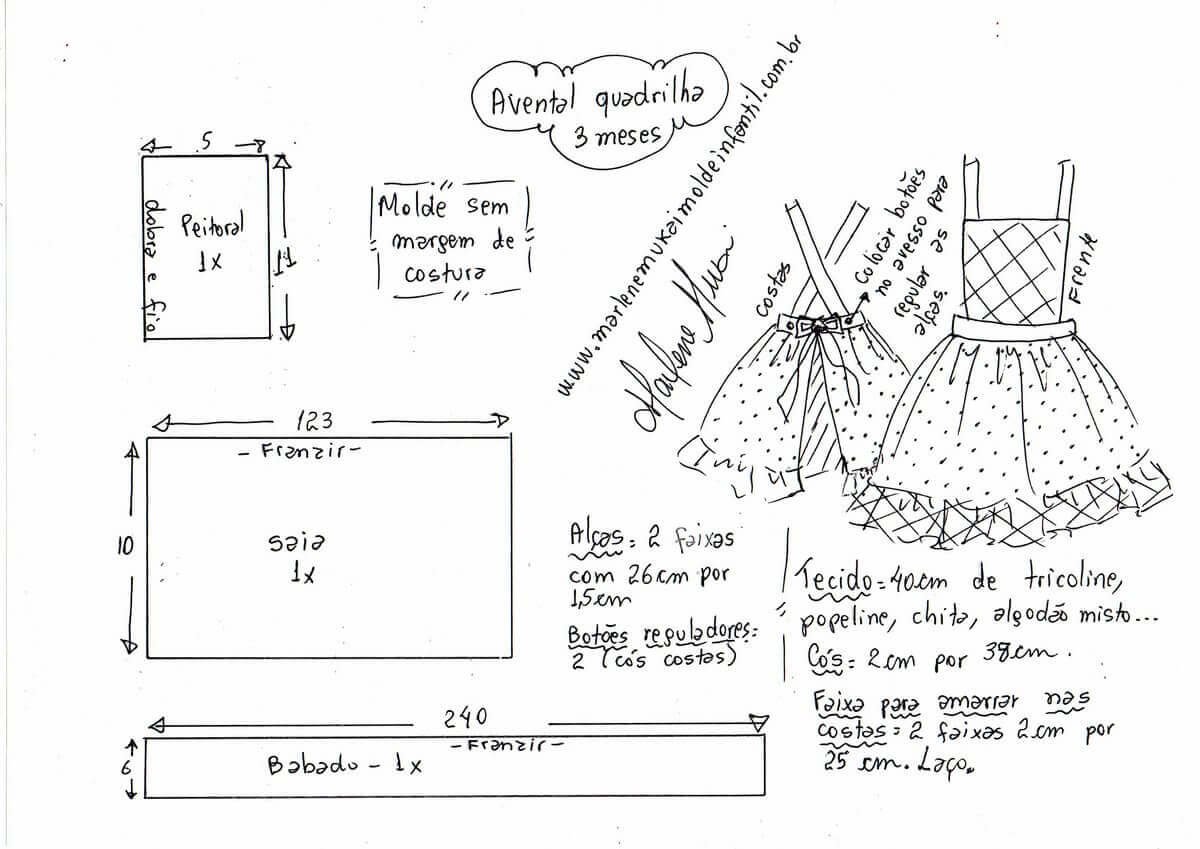 Avental quadrilha
3 meses
www.marlenemukaimoldeinfantil.com.br
Marlene Mukai
5
dobra e fio
Peitoral
1x
11
Molde sem
margem de
costura
costas
colocar botões
no avesso para
regular as
alças.
Frente
123
- Franzir -
10
saia
1x
240
- Franzir -
6
Babado - 1x
Alças = 2 faixas
com 26cm por
1,5cm
Botões reguladores =
2 (cós costas)
Tecido = 40cm de tricoline,
popeline, chita, algodão misto...
Cós = 2cm por 38cm.
Faixa para amarrar nas
costas = 2 faixas 2cm por
25 cm. Laço.